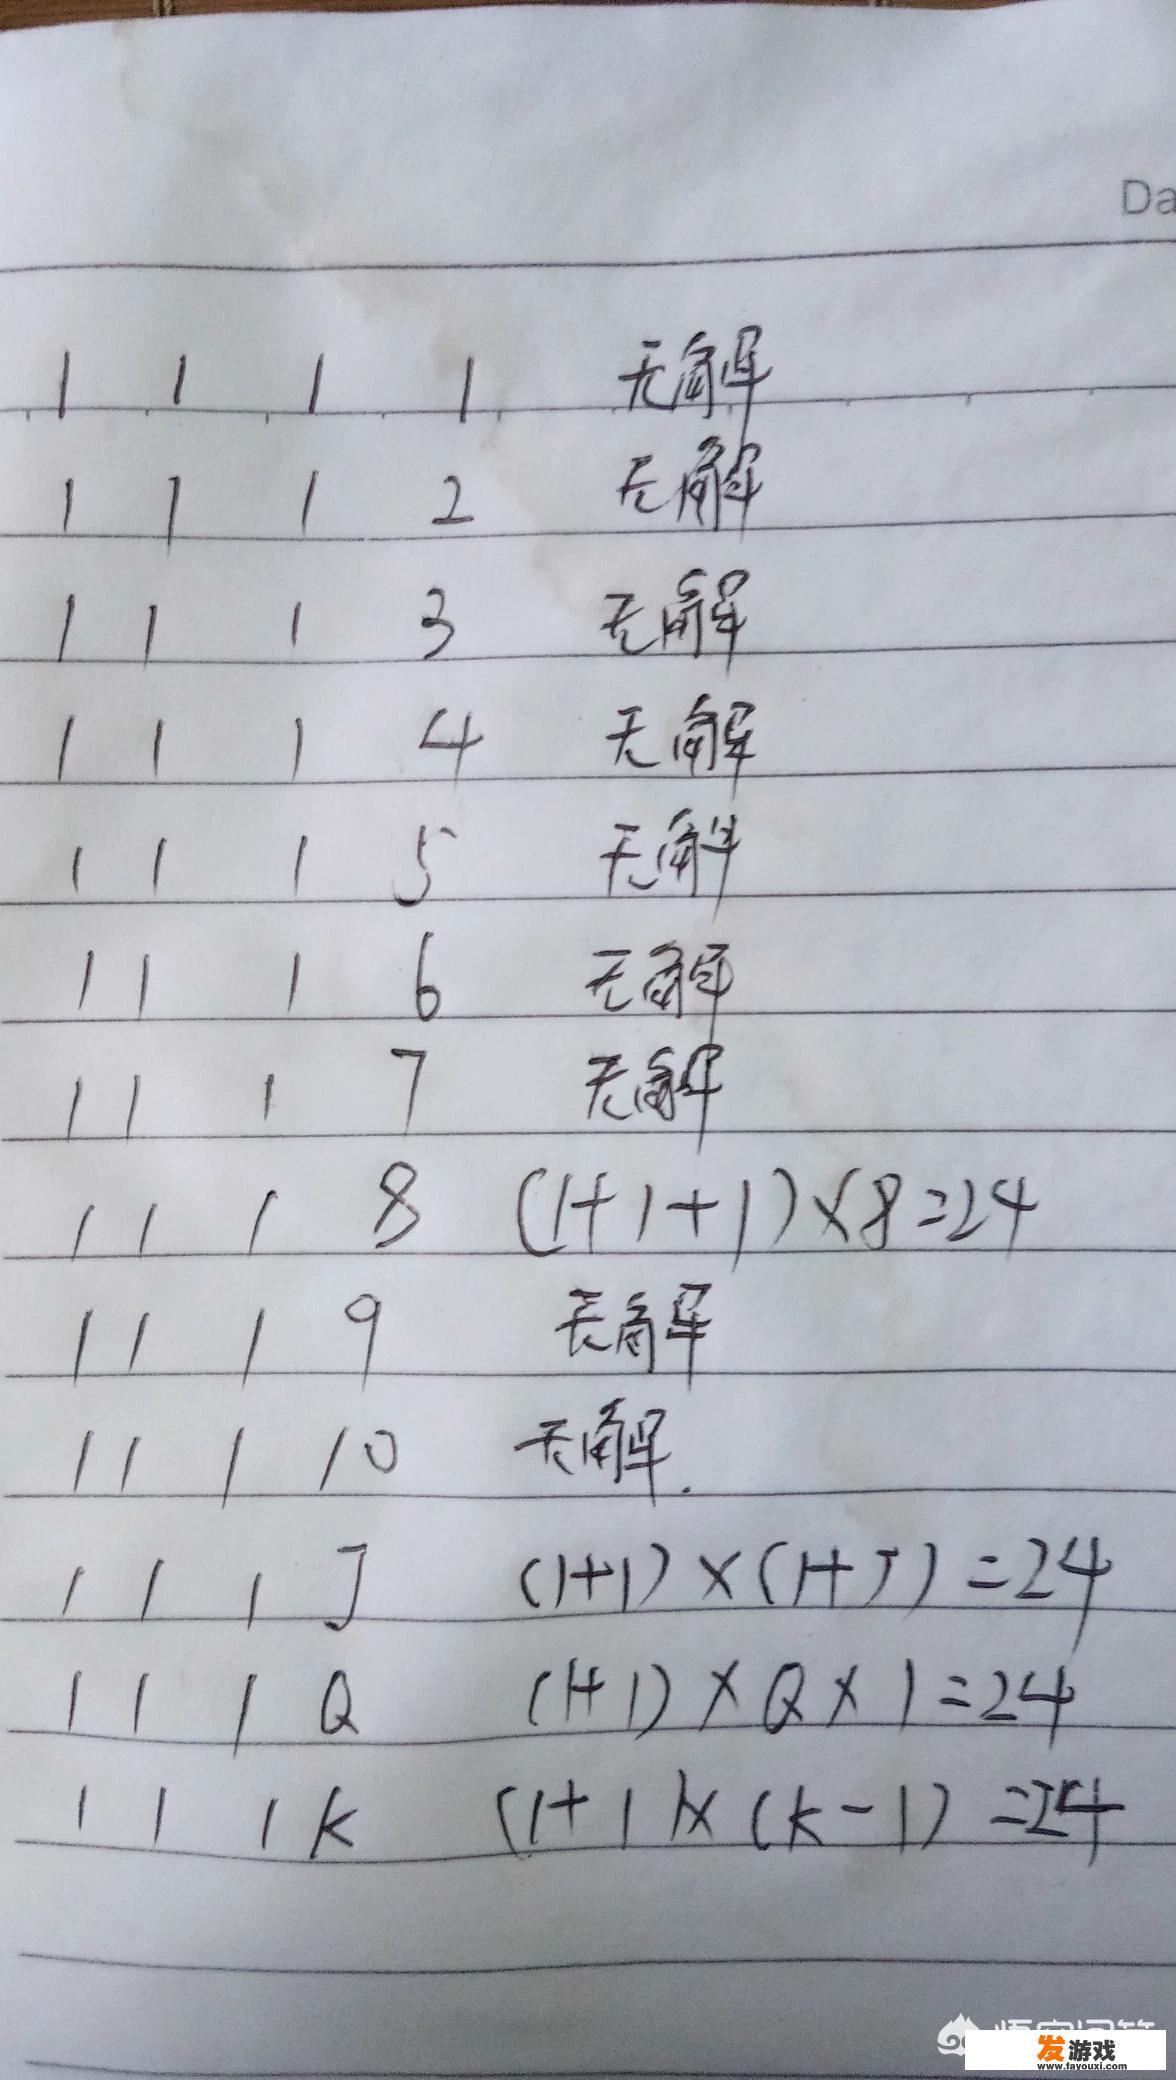 Da
1 1 1 1 无解
1 1 1 2 无解
1 1 1 3 无解
1 1 1 4 无解
1 1 1 5 无解
1 1 1 6 无解
1 1 1 7 无解
1 1 1 8 (1+1+1)×8=24
1 1 1 9 无解
1 1 1 10 无解.
1 1 1 J (1+1)×(1+J)=24
1 1 1 Q (1+1)×Q×1=24
1 1 1 K (1+1)×(K-1)=24
发游戏
www.fayouxi.com